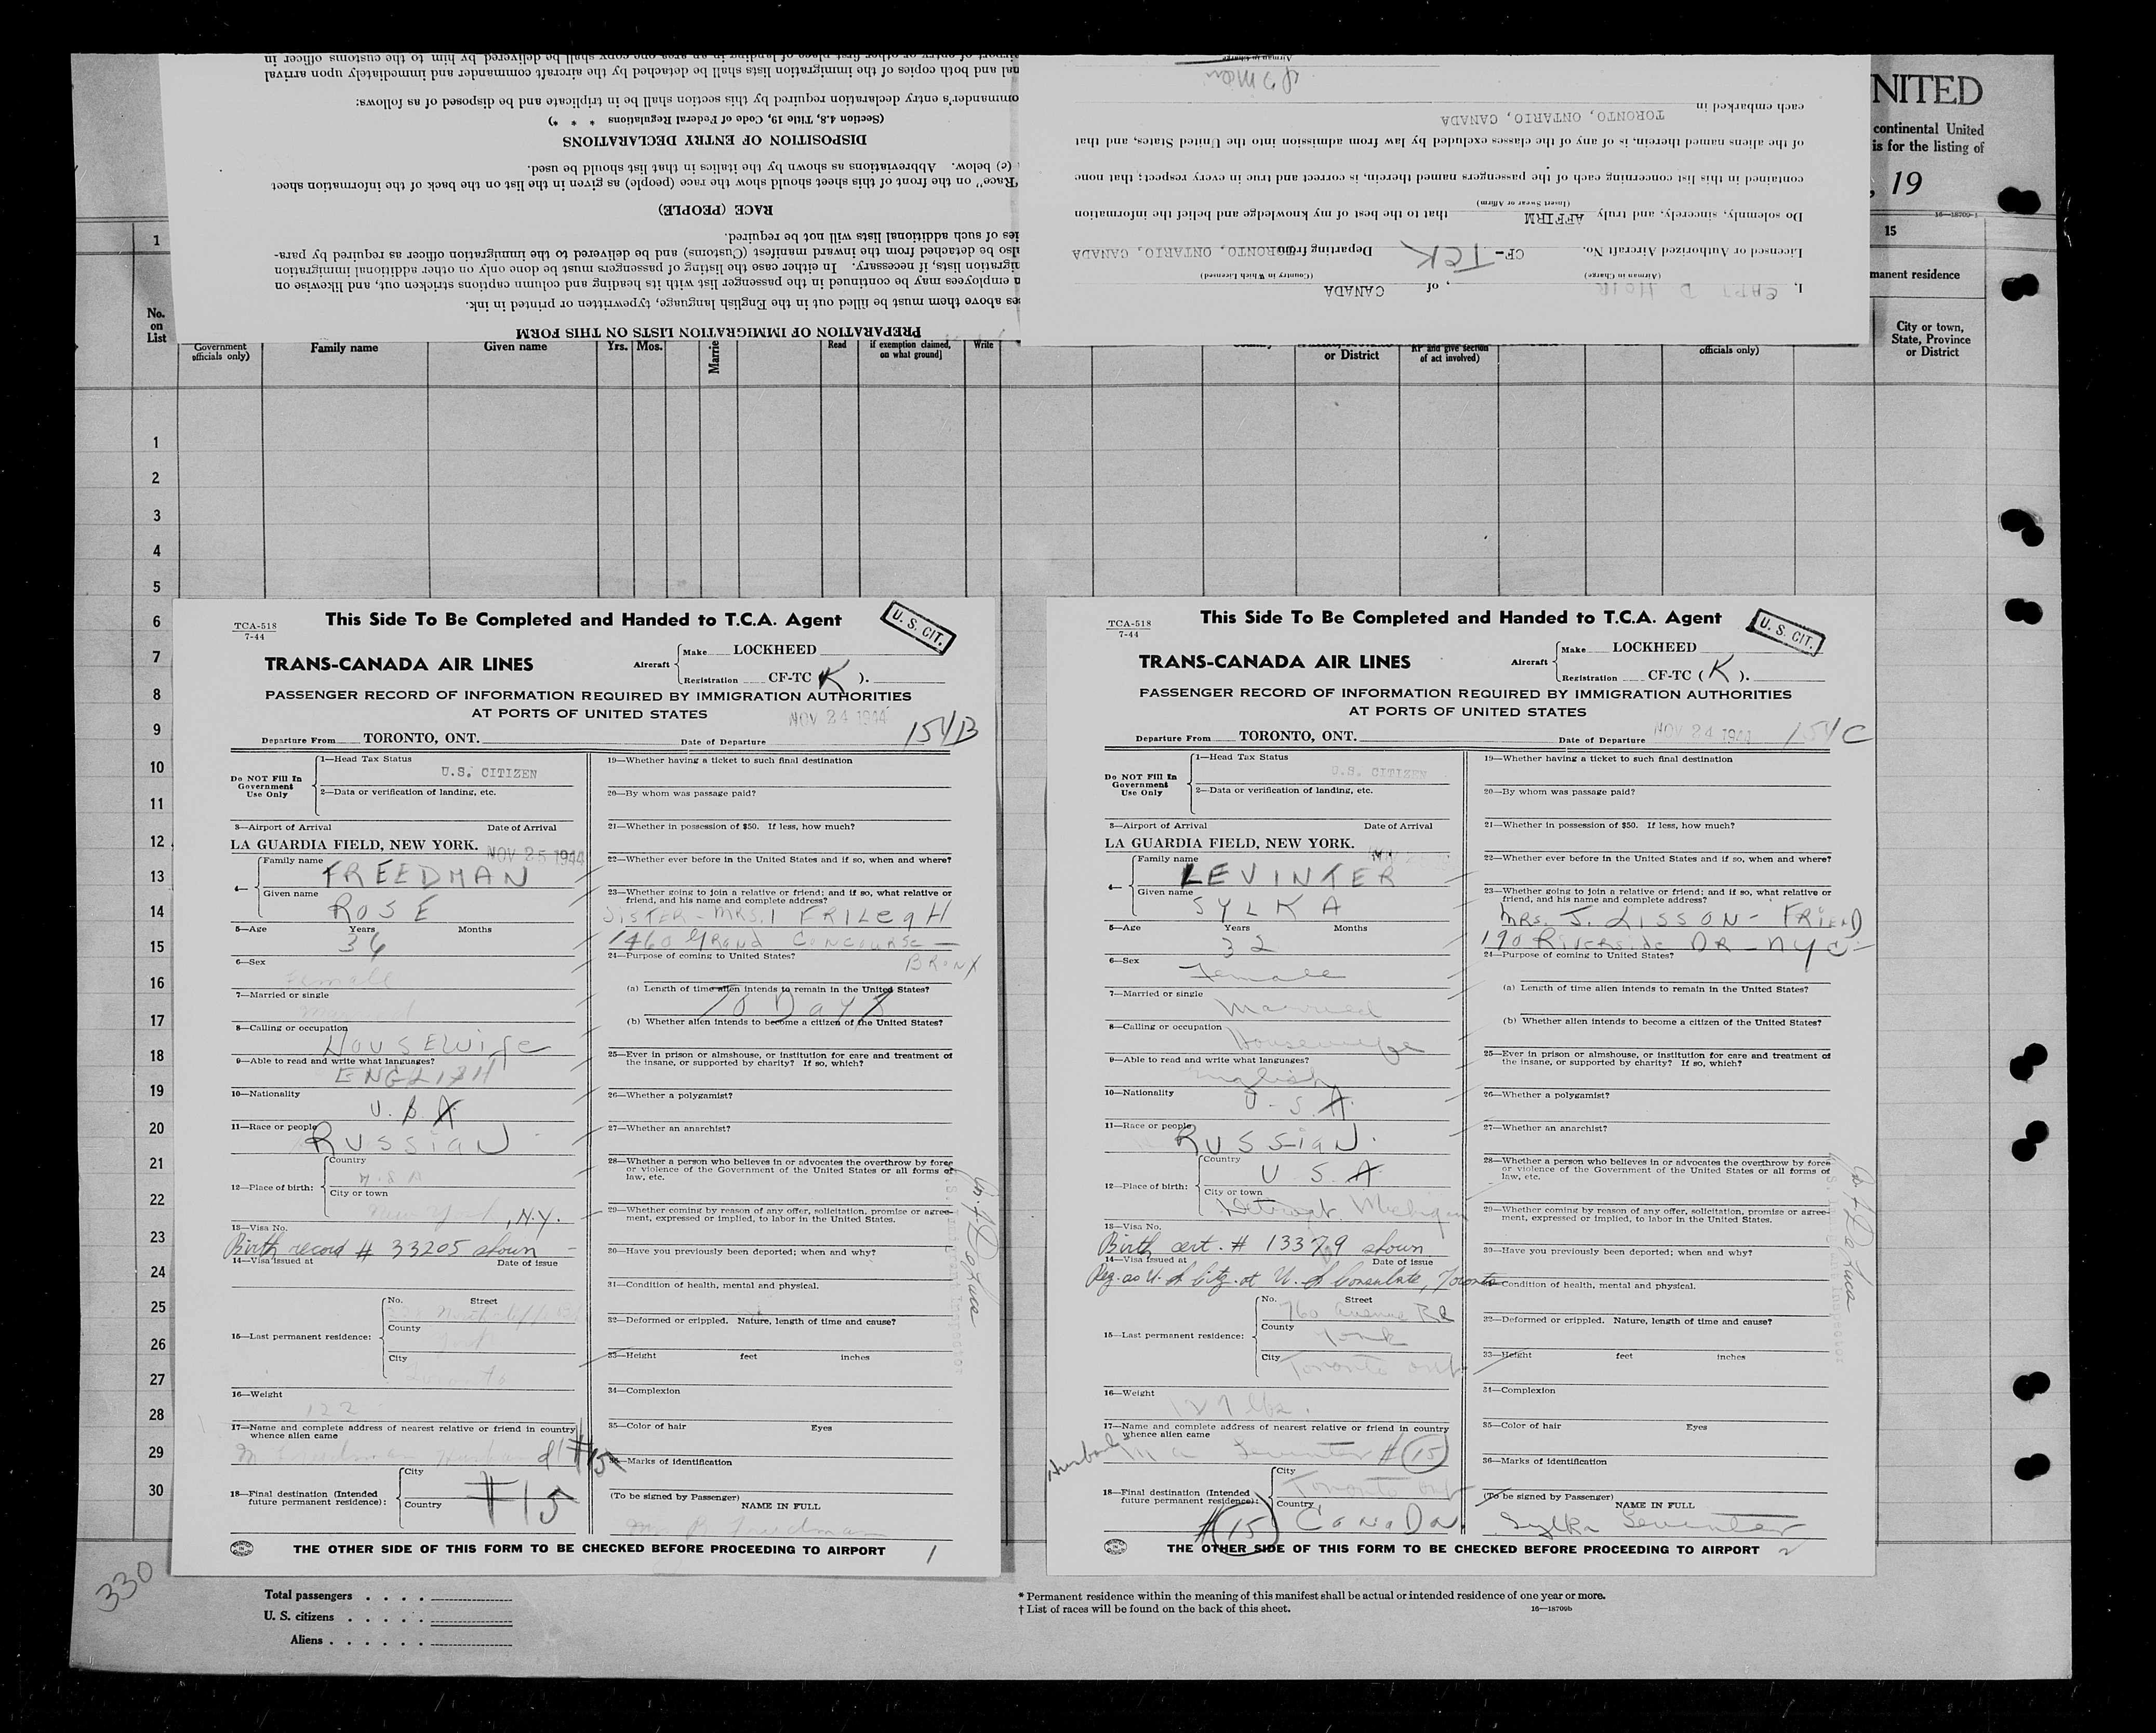 NITED
continental United
is for the listing of
, 19
16—18709-1
15
manent residence
City or town,
State, Province
or District
portof entry or other first place of landing in an area one copy shall be delivered by him to the customs officer in
nal and both copies of the immigration lists shall be detached by the aircraft commander and immediately upon arrival
ommander's entry declaration required by this section shall be in triplicate and be disposed of as follows:
(Section 4.8, Title 19, Code of Federal Regulations * * *)
DISPOSITION OF ENTRY DECLARATIONS
(e) below. Abbreviations as shown by the italics in that list should be used.
"Race" on the front of this sheet should show the race (people) as given in the list on the back of the information sheet
RACE (PEOPLE)
ies of such additional lists will not be required.
lso be detached from the inward manifest (Customs) and be delivered to the immigration officer as required by para-
migration lists, if necessary. In either case the listing of passengers must be done only on other additional immigration
n employees may be continued in the passenger list with its heading and column captions stricken out, and likewise on
es above them must be filled out in the English language, typewritten or printed in ink.
PREPARATION OF IMMIGRATION LISTS ON THIS FORM
I, CAPT D MOIR, of CANADA
(Airman in Charge) (Country in Which Licensed)
Licensed or Authorized Aircraft No. CF-TCK Departing from TORONTO, ONTARIO, CANADA
Do solemnly, sincerely, and truly AFFIRM that to the best of my knowledge and belief the information
(Insert Swear or Affirm)
contained in this list concerning each of the passengers named therein, is correct and true in every respect; that none
of the aliens named therein, is of any of the classes excluded by law from admission into the United States, and that
each embarked in TORONTO, ONTARIO, CANADA
Airman in Charge
1
No.
on
List
Government
officials only)
Family name
Given name
Yrs.
Mos.
Marrie
Read
if exemption claimed,
on what ground]
Write
or District
RP and give section
of act involved)
officials only)
1
2
3
4
5
6
7
8
9
10
11
12
13
14
15
16
17
18
19
20
21
22
23
24
25
26
27
28
29
30
TCA-518
7-44
This Side To Be Completed and Handed to T.C.A. Agent
U. S. CIT.
TRANS-CANADA AIR LINES
Aircraft
Make LOCKHEED
Registration CF-TC (K ).
PASSENGER RECORD OF INFORMATION REQUIRED BY IMMIGRATION AUTHORITIES
AT PORTS OF UNITED STATES
NOV 24 1944
154B
Departure From TORONTO, ONT.
Date of Departure
Do NOT Fill In
Government
Use Only
1—Head Tax Status
U.S. CITIZEN
2—Data or verification of landing, etc.
3—Airport of Arrival Date of Arrival
LA GUARDIA FIELD, NEW YORK. NOV 25 1944
4—
Family name FREEDMAN
Given name ROSE
5—Age Years Months
36
6—Sex
Female
7—Married or single
Married
8—Calling or occupation
HOUSEWIFE
9—Able to read and write what languages?
ENGLISH
10—Nationality
U.S.A
11—Race or people
RUSSIAN
12—Place of birth:
Country
U.S.A
City or town
New York, N.Y.
13—Visa No.
Birth record # 33205 shown
14—Visa issued at Date of issue
15—Last permanent residence:
No. Street
County
York
City
Toronto
16—Weight
122
17—Name and complete address of nearest relative or friend in country
whence alien came
M Freedman Husband at #15
18—Final destination (Intended
future permanent residence):
City
Country
#15
19—Whether having a ticket to such final destination
20—By whom was passage paid?
21—Whether in possession of $50. If less, how much?
22—Whether ever before in the United States and if so, when and where?
23—Whether going to join a relative or friend; and if so, what relative or
friend, and his name and complete address?
SISTER - MRS. I FRILEGH
1460 GRAND CONCOURSE —
BRONX
24—Purpose of coming to United States?
(a) Length of time alien intends to remain in the United States?
10 DAYS
(b) Whether alien intends to become a citizen of the United States?
25—Ever in prison or almshouse, or institution for care and treatment of
the insane, or supported by charity? If so, which?
26—Whether a polygamist?
27—Whether an anarchist?
28—Whether a person who believes in or advocates the overthrow by force
or violence of the Government of the United States or all forms of
law, etc.
29—Whether coming by reason of any offer, solicitation, promise or agree-
ment, expressed or implied, to labor in the United States.
30—Have you previously been deported; when and why?
31—Condition of health, mental and physical.
32—Deformed or crippled. Nature, length of time and cause?
33—Height feet inches
34—Complexion
35—Color of hair Eyes
36—Marks of identification
(To be signed by Passenger)
NAME IN FULL
Mrs R Freedman
THE OTHER SIDE OF THIS FORM TO BE CHECKED BEFORE PROCEEDING TO AIRPORT
1
TCA-518
7-44
This Side To Be Completed and Handed to T.C.A. Agent
U. S. CIT.
TRANS-CANADA AIR LINES
Aircraft
Make LOCKHEED
Registration CF-TC (K ).
PASSENGER RECORD OF INFORMATION REQUIRED BY IMMIGRATION AUTHORITIES
AT PORTS OF UNITED STATES
NOV 24 1944
154C
Departure From TORONTO, ONT.
Date of Departure
Do NOT Fill In
Government
Use Only
1—Head Tax Status
U.S. CITIZEN
2—Data or verification of landing, etc.
3—Airport of Arrival Date of Arrival
LA GUARDIA FIELD, NEW YORK.
4—
Family name LEVINTER
Given name SYLKA
5—Age Years Months
32
6—Sex
Female
7—Married or single
Married
8—Calling or occupation
Housewife
9—Able to read and write what languages?
English
10—Nationality
U.S.A.
11—Race or people
RUSSIAN.
12—Place of birth:
Country
U S A
City or town
Detroit Michigan
13—Visa No.
Birth cert. # 13379 shown
14—Visa issued at Date of issue
Reg. as U.S. Citz. at U.S. Consulate, Toronto
15—Last permanent residence:
No. Street
760 Avenue Rd
County
York
City
Toronto Ont.
16—Weight
127 lbs.
17—Name and complete address of nearest relative or friend in country
whence alien came
Husband M A Levinter # (15)
18—Final destination (Intended
future permanent residence):
City
Toronto Ont
Country
#(15) CANADA.
19—Whether having a ticket to such final destination
20—By whom was passage paid?
21—Whether in possession of $50. If less, how much?
22—Whether ever before in the United States and if so, when and where?
23—Whether going to join a relative or friend; and if so, what relative or
friend, and his name and complete address?
MRS. J. LISSON - FRIEND
190 Riverside DR - NYC -
24—Purpose of coming to United States?
(a) Length of time alien intends to remain in the United States?
(b) Whether alien intends to become a citizen of the United States?
25—Ever in prison or almshouse, or institution for care and treatment of
the insane, or supported by charity? If so, which?
26—Whether a polygamist?
27—Whether an anarchist?
28—Whether a person who believes in or advocates the overthrow by force
or violence of the Government of the United States or all forms of
law, etc.
29—Whether coming by reason of any offer, solicitation, promise or agree-
ment, expressed or implied, to labor in the United States.
30—Have you previously been deported; when and why?
31—Condition of health, mental and physical.
32—Deformed or crippled. Nature, length of time and cause?
33—Height feet inches
34—Complexion
35—Color of hair Eyes
36—Marks of identification
(To be signed by Passenger)
NAME IN FULL
Sylka Levinter
THE OTHER SIDE OF THIS FORM TO BE CHECKED BEFORE PROCEEDING TO AIRPORT
2
330
Total passengers . . . .
U. S. citizens . . . . .
Aliens . . . . . .
* Permanent residence within the meaning of this manifest shall be actual or intended residence of one year or more.
† List of races will be found on the back of this sheet.
16—18709b